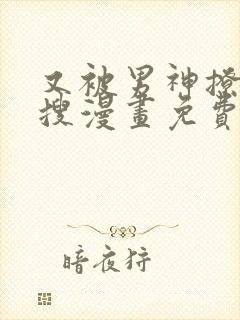 又被男神撩
搜漫畫免費
暗夜狩